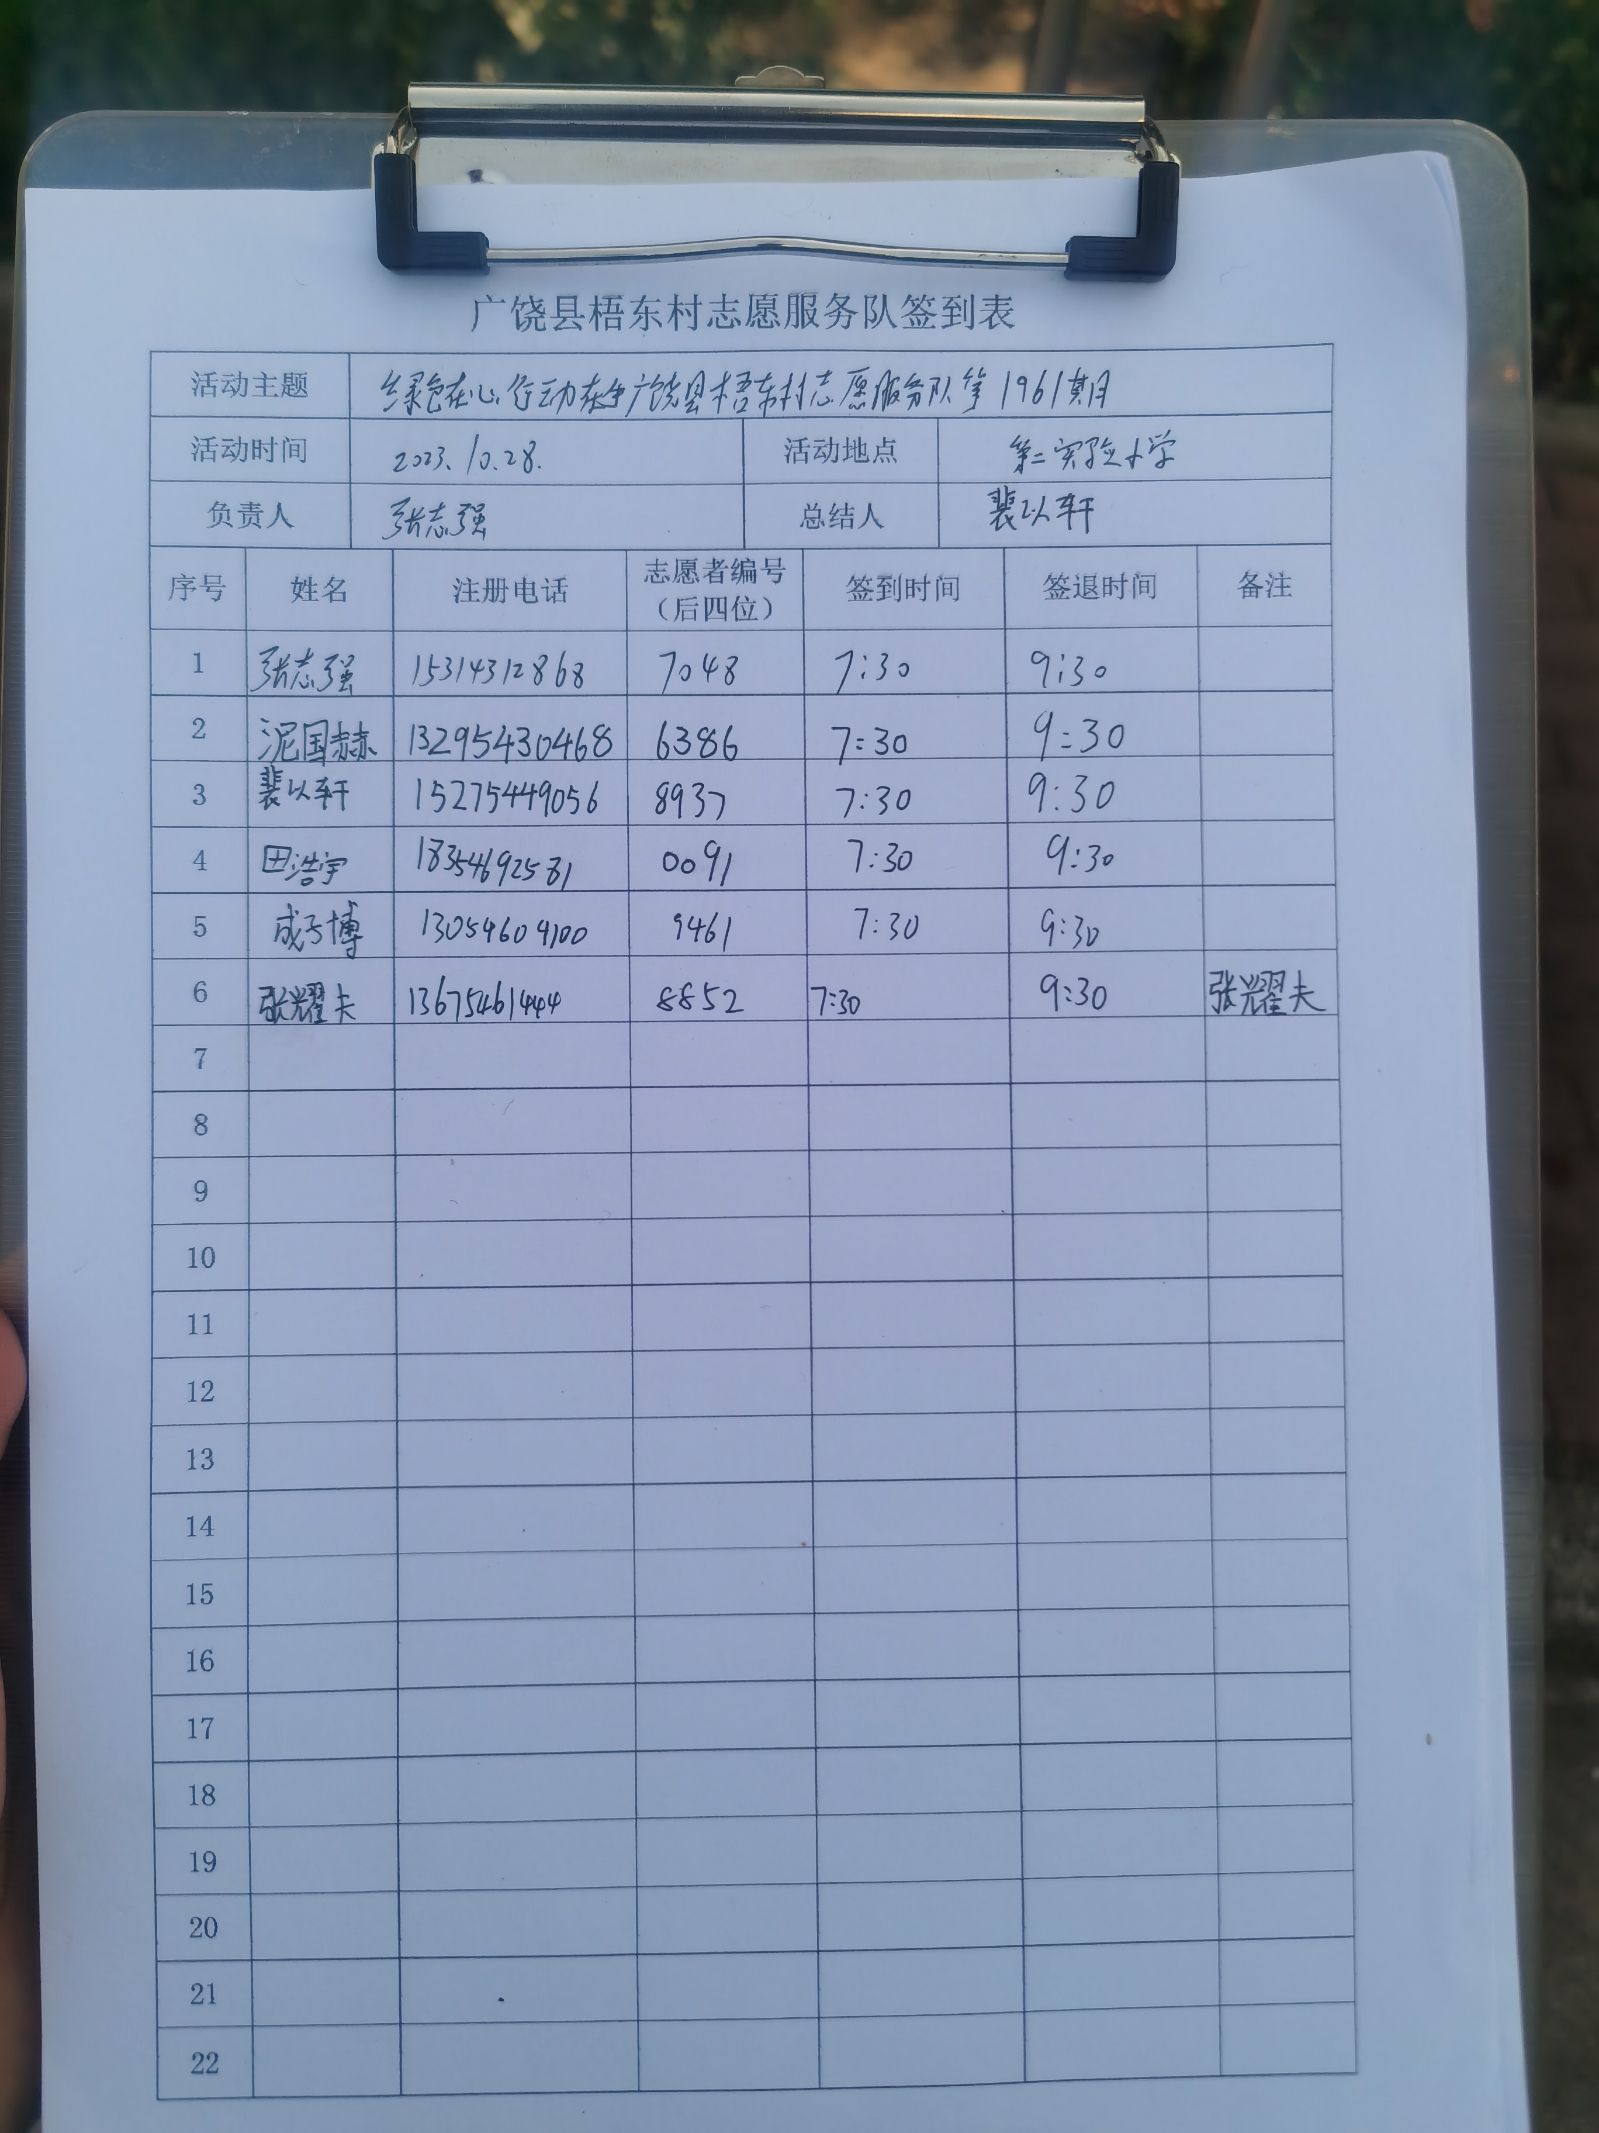 广饶县梧东村志愿服务队签到表
活动主题 绿色在心,行动在手广饶县梧东村志愿服务队第1961期
活动时间 2023.10.28. 活动地点 第二实验小学
负责人 张志强 总结人 裴以轩
序号 姓名 注册电话 志愿者编号（后四位） 签到时间 签退时间 备注
1 张志强 15314312868 7048 7:30 9:30
2 泥国赫 13295430468 6386 7:30 9:30
3 裴以轩 15275449056 8937 7:30 9:30
4 田浩宇 18354692581 0091 7:30 9:30
5 成子博 13054609100 9461 7:30 9:30
6 张耀夫 13675461444 8852 7:30 9:30 张耀夫
7
8
9
10
11
12
13
14
15
16
17
18
19
20
21
22